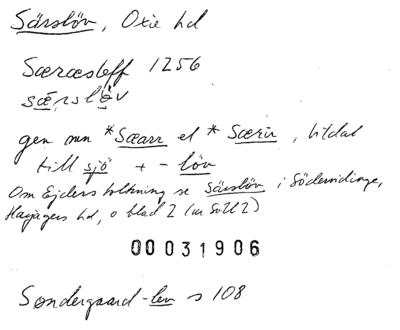 Särslöv, Oxie hd
Særæsleff 1256
sǣrslö̀v
gen mn *Sæarr el *Særir, bildat
till sjö + -löv
Om Ejders tolkning se Särslöv i Södervidinge,
Harjagers hd, o blad 2
00031906
Søndergaard -lev s 108